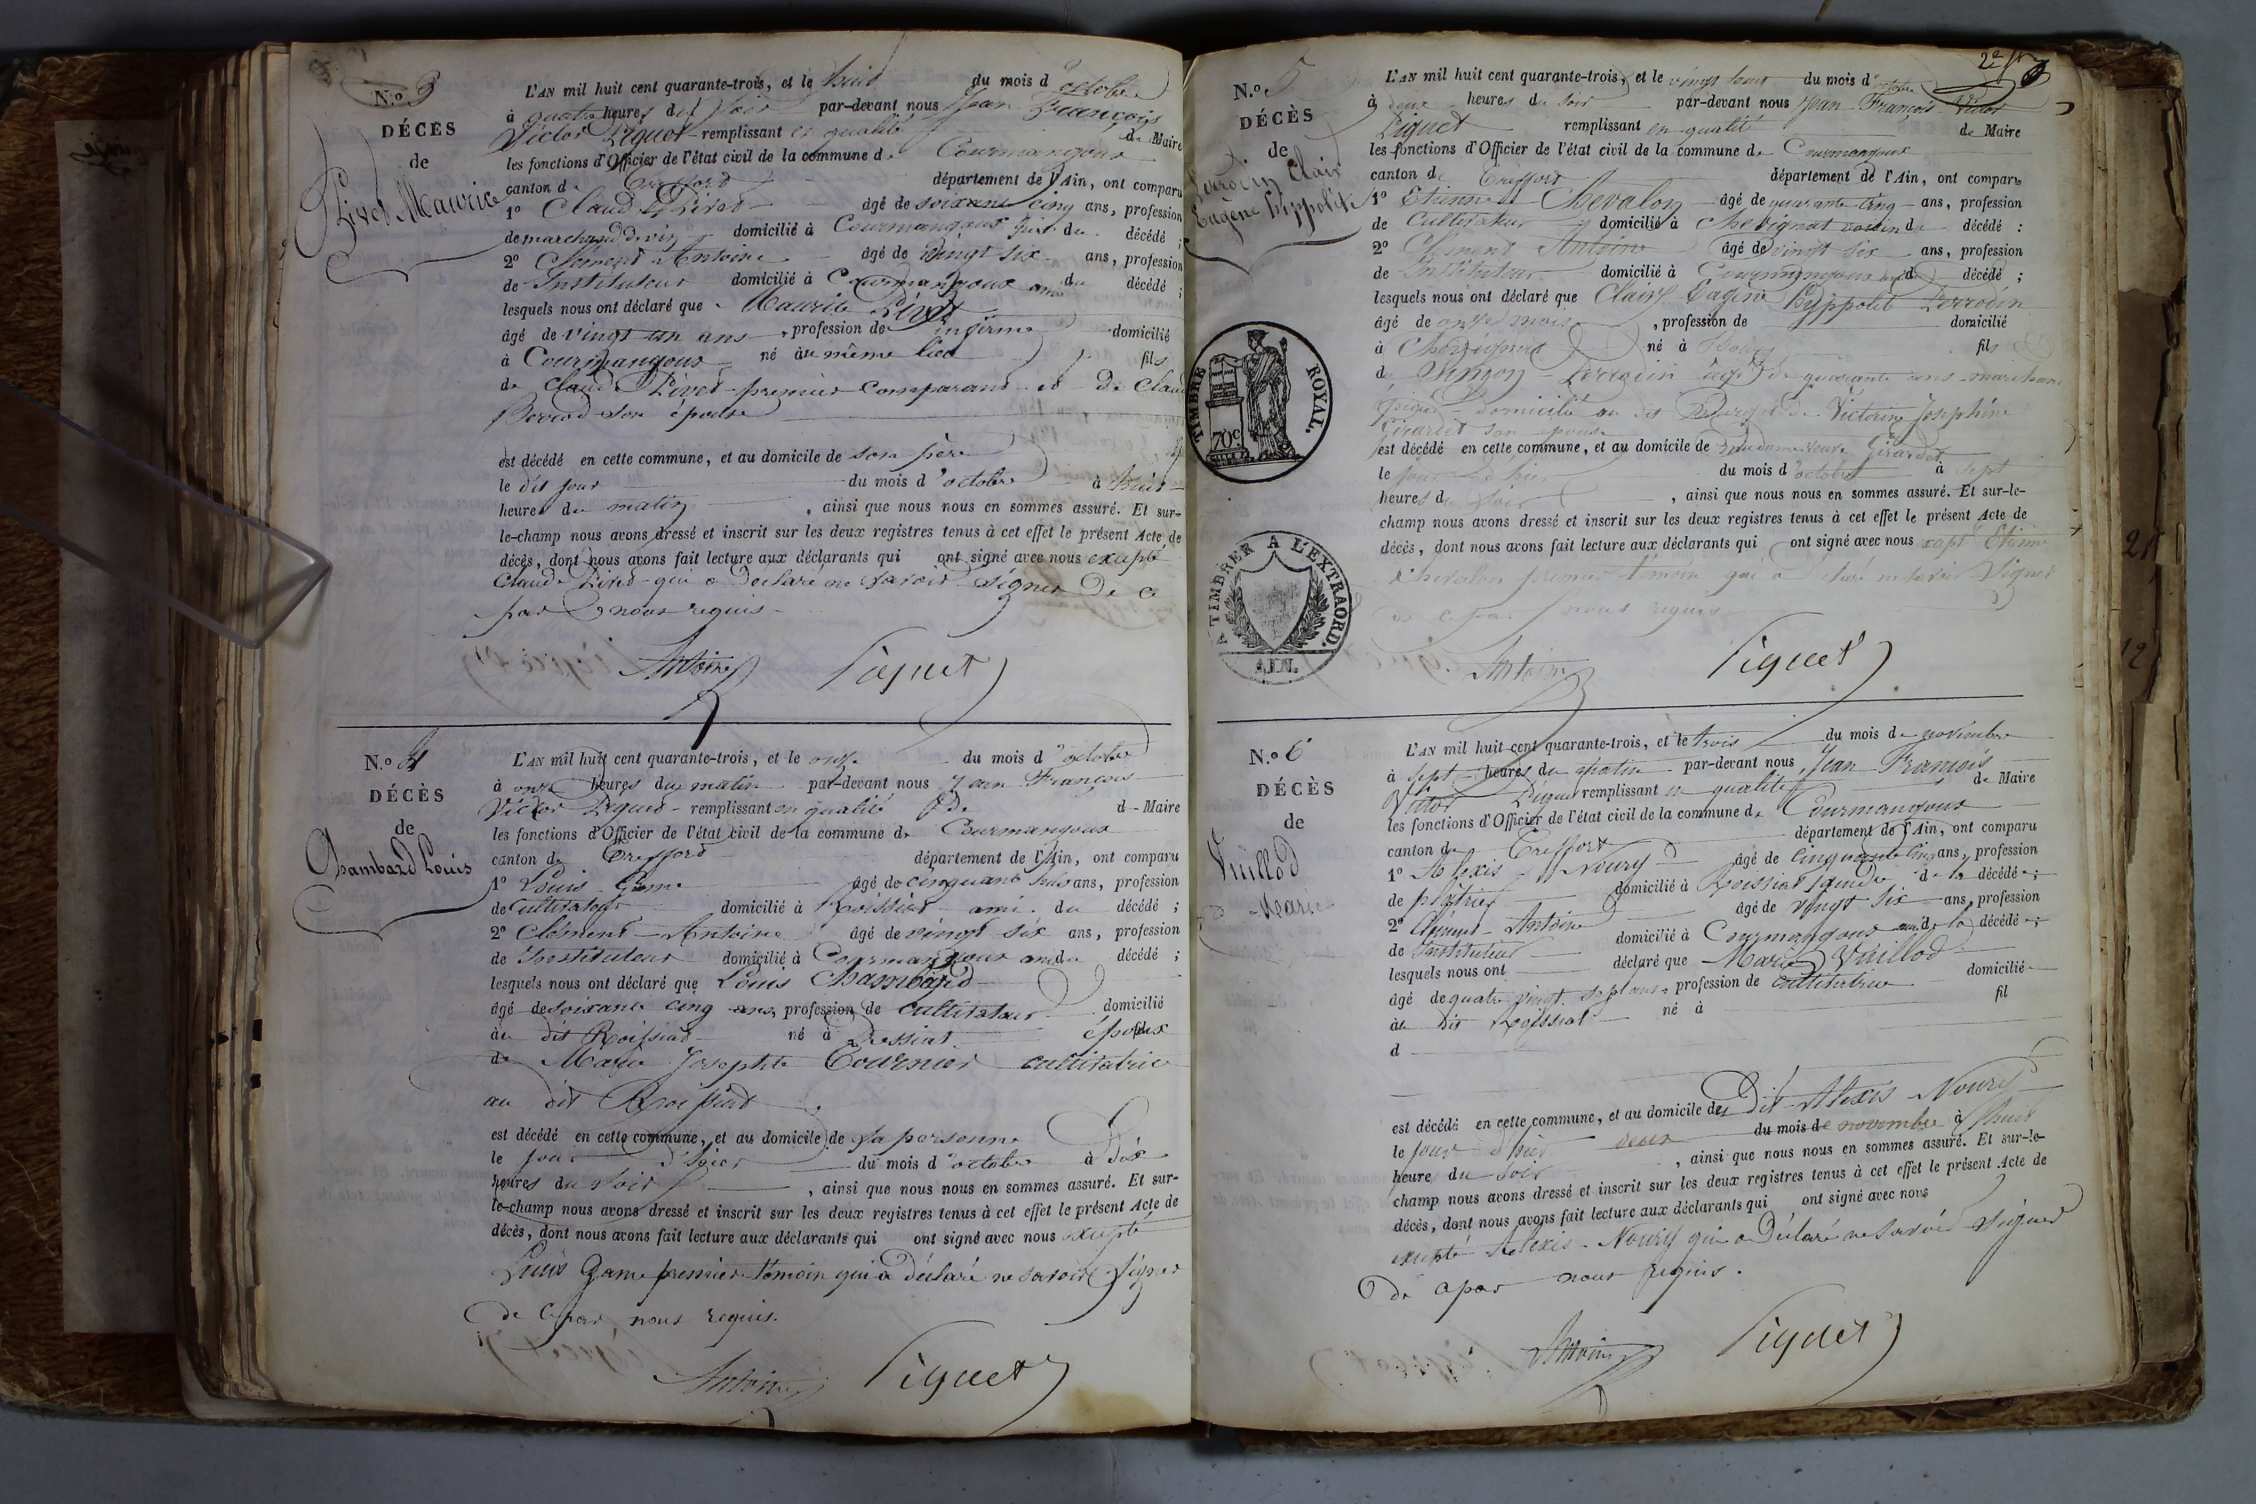 N.o 3
DÉCÈS
de
Pivet Maurice
L'AN mil huit cent quarante-trois, et le huit du mois d'octobre
à quatre heures du soir par-devant nous Jean François
Victor Piquet remplissant en qualité de Maire
les fonctions d'Officier de l'état civil de la commune de Courmangoux
canton de Treffort département de l'Ain, ont comparu
1o Claude Pivet âgé de soixante cinq ans, profession
de marchand de vin domicilié à Courmangoux père du décédé ;
2o Clement Antoine âgé de vingt six ans, profession
de Instituteur domicilié à Courmangoux ami du décédé ;
lesquels nous ont déclaré que Maurice Pivet
âgé de vingt un ans, profession de infirme domicilié
à Courmangoux né au même lieu fils
de Claude Pivet premier comparant et de Claud
son épouse
est décédé en cette commune, et au domicile de son père
le dit jour du mois d'octobre à huit
heures du matin, ainsi que nous nous en sommes assuré. Et sur-
le-champ nous avons dressé et inscrit sur les deux registres tenus à cet effet le présent Acte de
décès, dont nous avons fait lecture aux déclarants qui ont signé avec nous excepté
Claude Pivet qui a déclaré ne savoir signer de ce
par nous requis
Antoine Piquet
N.o 4
DÉCÈS
de
Chambard Louis
L'AN mil huit cent quarante-trois, et le onze du mois d'octobre
à onze heures du matin par-devant nous Jean François
Victor Piquet remplissant en qualité de d Maire
les fonctions d'Officier de l'état civil de la commune de Courmangoux
canton de Treffort département de l'Ain, ont comparu
1o Louis Game âgé de cinquante huit ans, profession
de Cultivateur domicilié à Roissiat ami du décédé ;
2o Clément Antoine âgé de vingt six ans, profession
de Instituteur domicilié à Courmangoux ami du décédé ;
lesquels nous ont déclaré que Louis Chambard
âgé de soixante cinq ans, profession de cultivateur domicilié
au dit Roissiat né à Dessiat époux
de Marie Josephte Tournier cultivatrice
au dit Roissiat
est décédé en cette commune, et au domicile de sa personne
le jour d'hier du mois d'octobre à dix
heures du soir, ainsi que nous nous en sommes assuré. Et sur-
le-champ nous avons dressé et inscrit sur les deux registres tenus à cet effet le présent Acte de
décès, dont nous avons fait lecture aux déclarants qui ont signé avec nous excepté
Louis Game premier témoin qui a déclaré ne savoir signer
de ce par nous requis.
Antoine Piquet
N.o 5
DÉCÈS
de
Clair
Eugène Hippolite
TIMBRE ROYAL.
70c
A TIMBRER A L'EXTRAORD.
AIN.
L'AN mil huit cent quarante-trois, et le vingt du mois d'octobre
à deux heures du soir par-devant nous Jean François Victor
Piquet remplissant en qualité de Maire
les fonctions d'Officier de l'état civil de la commune de Courmangoux
canton de Treffort département de l'Ain, ont comparu
1o Etienne Chevalon âgé de quarante cinq ans, profession
de Cultivateur domicilié à Chevignat voisin du décédé :
2o Clement Antoine âgé de vingt six ans, profession
de Instituteur domicilié à Courmangoux du décédé ;
lesquels nous ont déclaré que Clair Eugène Hyppolit
âgé de onze mois, profession de domicilié
à né à fils
d âgé de quarante ans marchand
domicilié au dit de Victorine Joséphine
Girardet son épouse
est décédé en cette commune, et au domicile de veuve Girardet
le jour d'hier du mois d'octobre à sept
heures du soir, ainsi que nous nous en sommes assuré. Et sur-le-
champ nous avons dressé et inscrit sur les deux registres tenus à cet effet le présent Acte de
décès, dont nous avons fait lecture aux déclarants qui ont signé avec nous Etienne
Chevalon premier témoin qui a déclaré ne savoir signer
de ce par nous requis
Antoine Piquet
N.o 6
DÉCÈS
de
Vuillod
Marie
L'AN mil huit cent quarante-trois, et le trois du mois de novembre
à sept heures du matin par-devant nous Jean François
Victor Piquet remplissant en qualité de Maire
les fonctions d'Officier de l'état civil de la commune de Courmangoux
canton de Treffort département de l'Ain, ont comparu
1o Alexis Noury âgé de cinquante cinq ans, profession
de plâtrier domicilié à Roissiat gendre de la décédée ;
2o Clément Antoine âgé de vingt six ans, profession
de Instituteur domicilié à Courmangoux ami de la décédée ;
lesquels nous ont déclaré que Marie Vuillod
âgé de quatre vingt sept ans, profession de cultivatrice domicilié
au dit Roissiat né à fil
d
est décédé en cette commune, et au domicile de dit Alexis Noury
le jour d'hier deux du mois de novembre à huit
heure du soir, ainsi que nous nous en sommes assuré. Et sur-le-
champ nous avons dressé et inscrit sur les deux registres tenus à cet effet le présent Acte de
décès, dont nous avons fait lecture aux déclarants qui ont signé avec nous
excepté Alexis Noury qui a déclaré ne savoir signer
de ce par nous requis.
Antoine Piquet